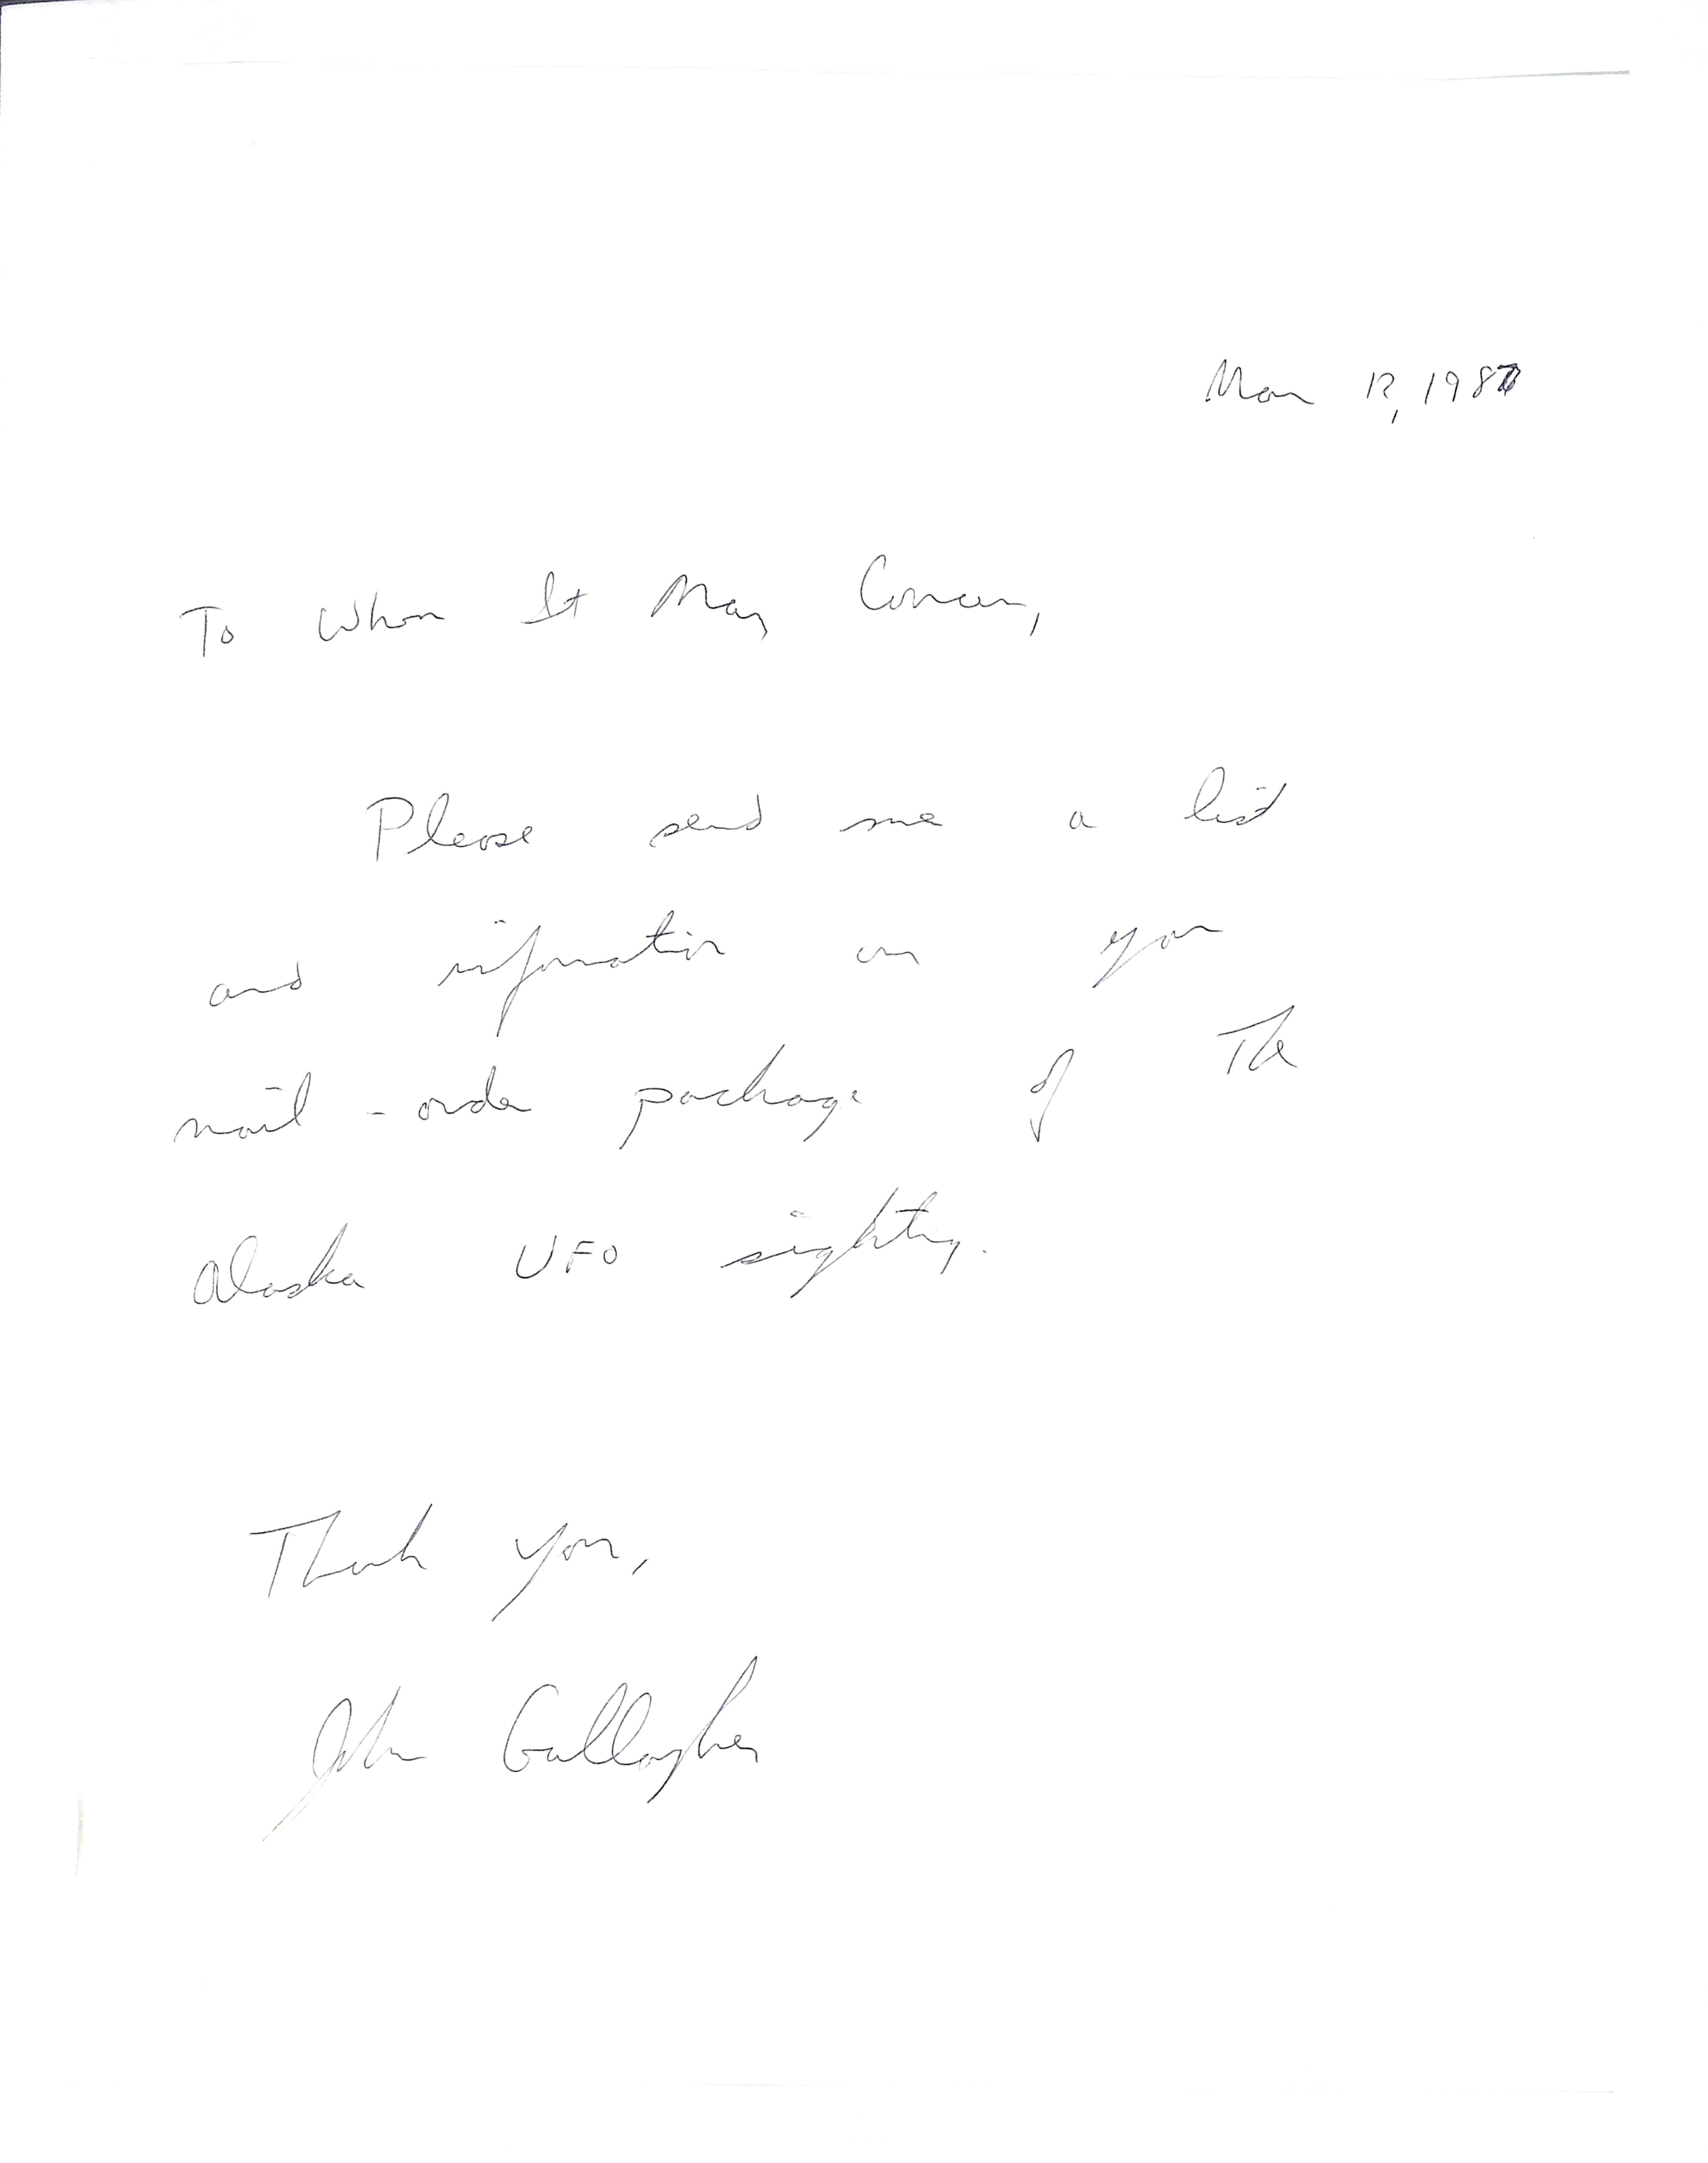 Mar 12, 1987
To Whom It May Concern,
Please send me a list
and information on your
mail-order package of the
Alaska UFO sighting.
Thank you,
John Gallagher